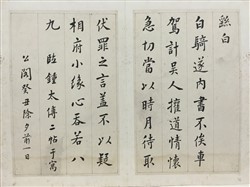 繇白
白騎遂內書不俟車
駕計吳人權道情懷
急切當以時月待取
伏罪之言蓋不以疑
相府小緣心吞若八
九 臨鍾太傅二帖于寓
公閣癸丑除夕前一日